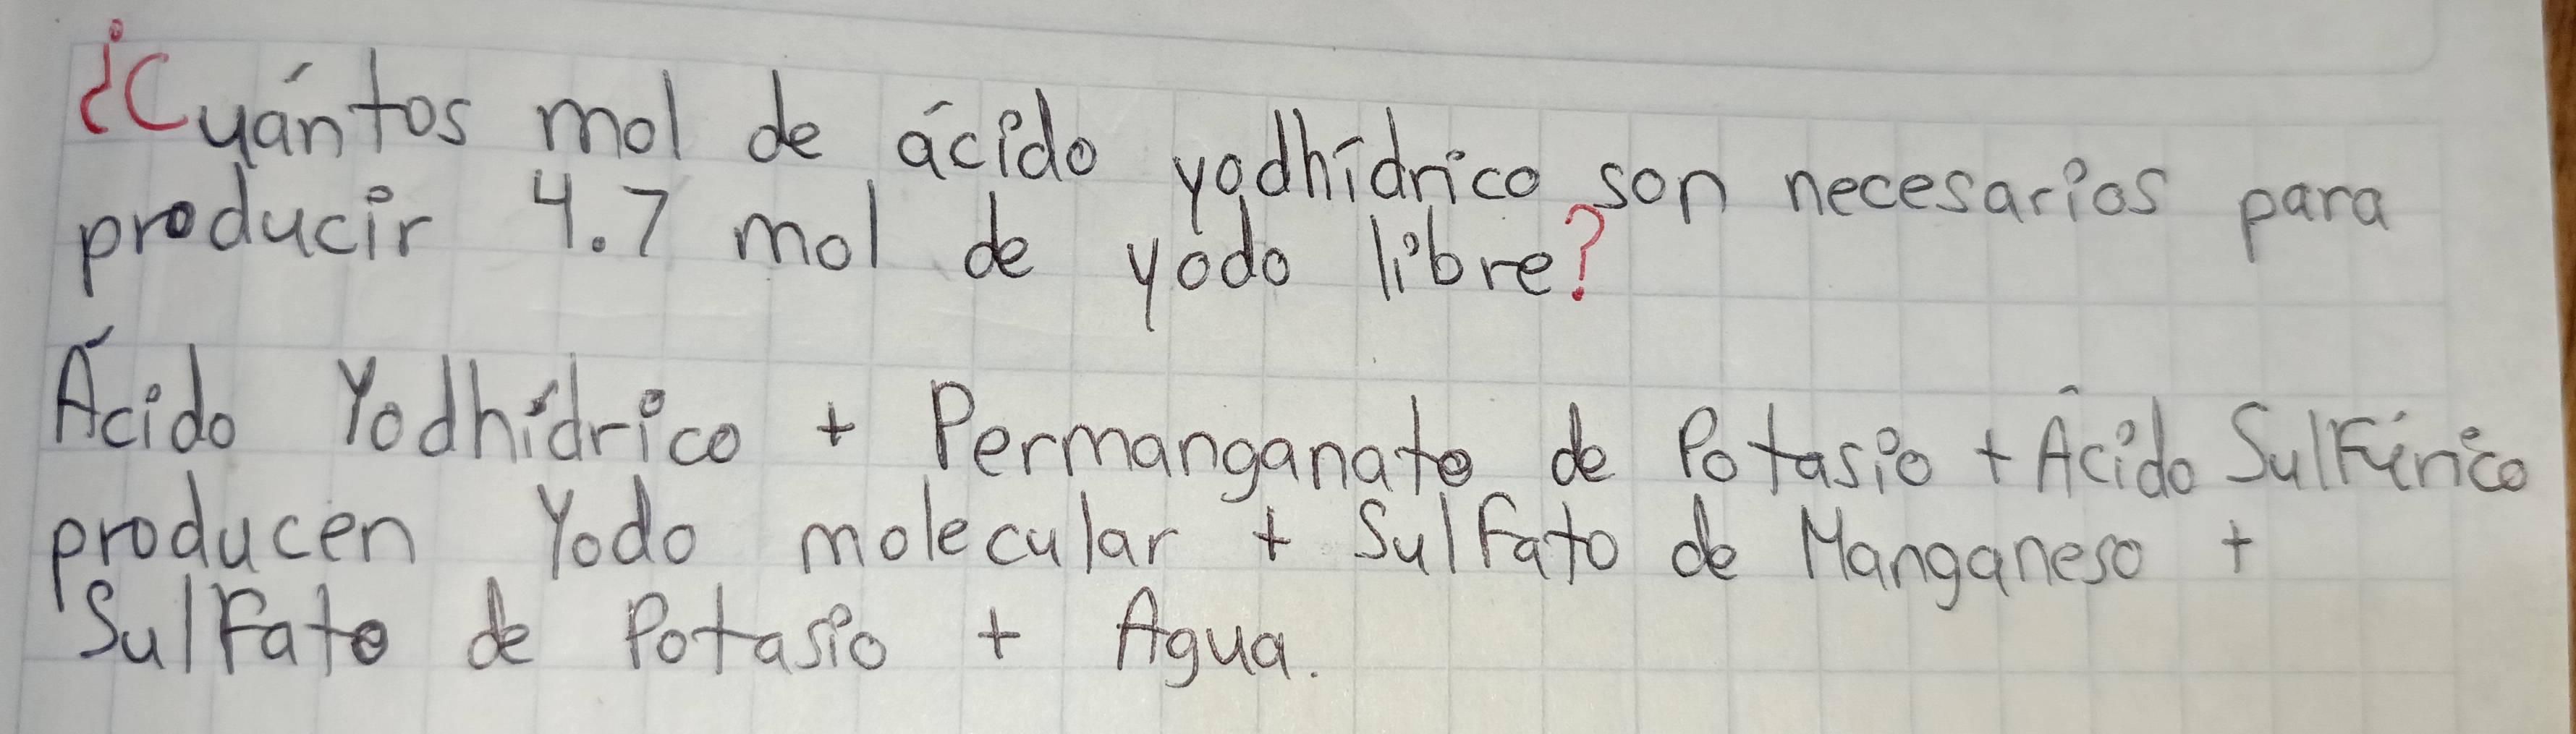 ¿Cuántos mol de ácido yodhídrico son necesarios para
producir 4.7 mol de yodo libre?
Ácido Yodhídrico + Permanganato de Potasio + Ácido Sulfúrico
producen Yodo molecular + Sulfato de Manganeso +
Sulfato de Potasio + Agua.